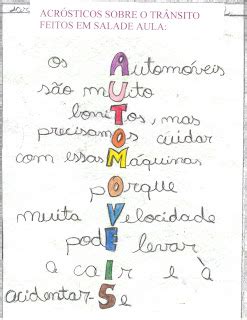 ACRÓSTICOS SOBRE O TRÂNSITO
FEITOS EM SALADE AULA:
os AutomóveiS
são mUito
boniTos, mas
precisamOs cuidar
com essas Máquinas
pOrque
muita Velocidade
podE levar
a caIr e à
acidentar-Se